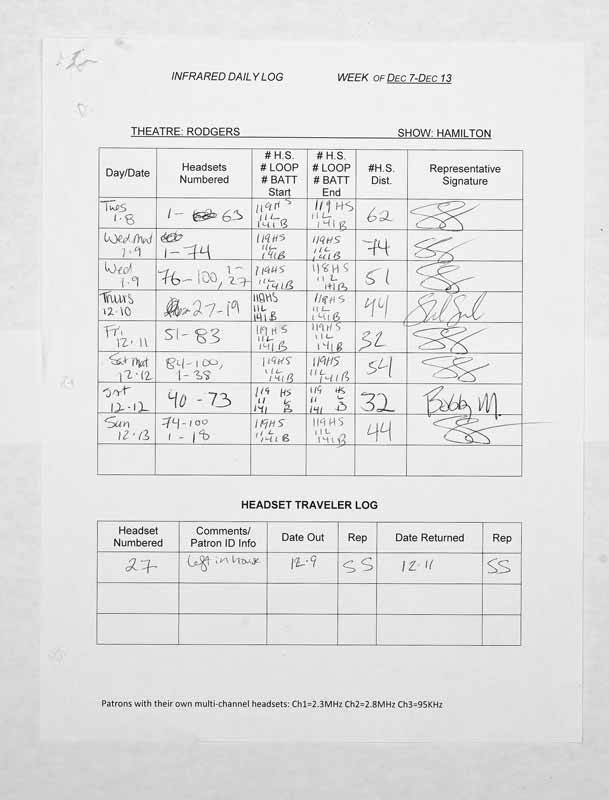 INFRARED DAILY LOG WEEK OF DEC 7-DEC 13
THEATRE: RODGERS SHOW: HAMILTON
Day/Date Headsets Numbered # H.S. # LOOP # BATT Start # H.S. # LOOP # BATT End #H.S. Dist. Representative Signature
Tues 1·8 1- 63 119HS 11L 141B 119HS 11L 141B 62
Wed Mat 1·9 1-74 119HS 11L 141B 119HS 11L 141B 74
Wed 1·9 76-100, 1-27 119HS 11L 141B 118HS 11L 141B 51
Thurs 12·10 27-19 118HS 11L 141B 118HS 11L 141B 44
Fri 12·11 51-83 119HS 11L 141B 119HS 11L 141B 32
Sat Mat 12·12 84-100, 1-38 119HS 11L 141B 119HS 11L 141B 54
Sat 12·12 40-73 119 HS 11 L 141 B 119 HS 11 L 141 B 32 Bobby M.
Sun 12·13 74-100 1-18 119HS 11L 141B 119HS 11L 141B 44
HEADSET TRAVELER LOG
Headset Numbered Comments/ Patron ID Info Date Out Rep Date Returned Rep
27 Left in house 12·9 SS 12·11 SS
Patrons with their own multi-channel headsets: Ch1=2.3MHz Ch2=2.8MHz Ch3=95KHz